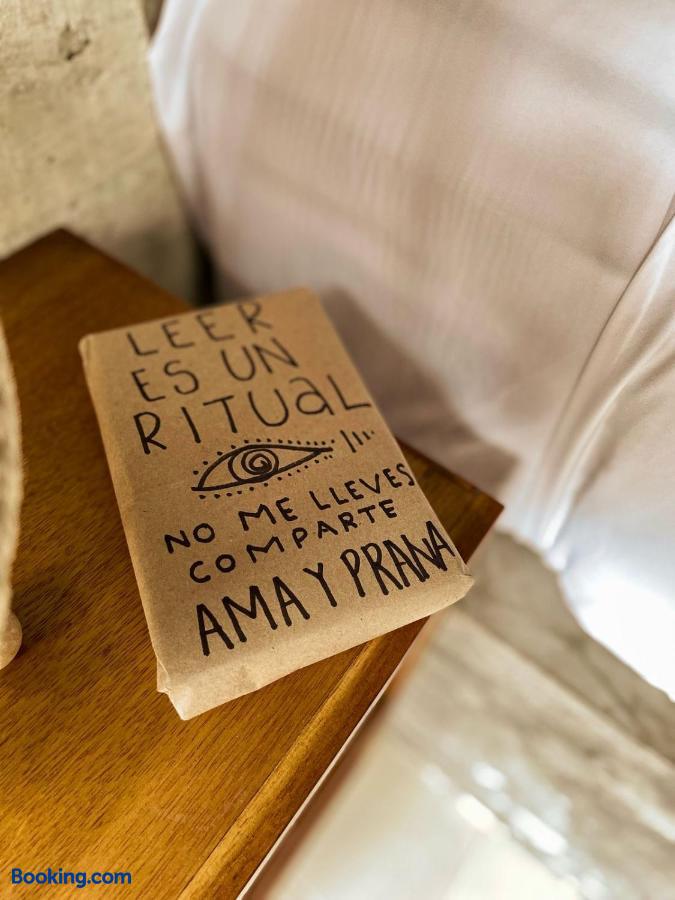 LEER
ES UN
RITUaL
NO ME LLEVES
COMPARTE
AMA Y PRANA
Booking.com